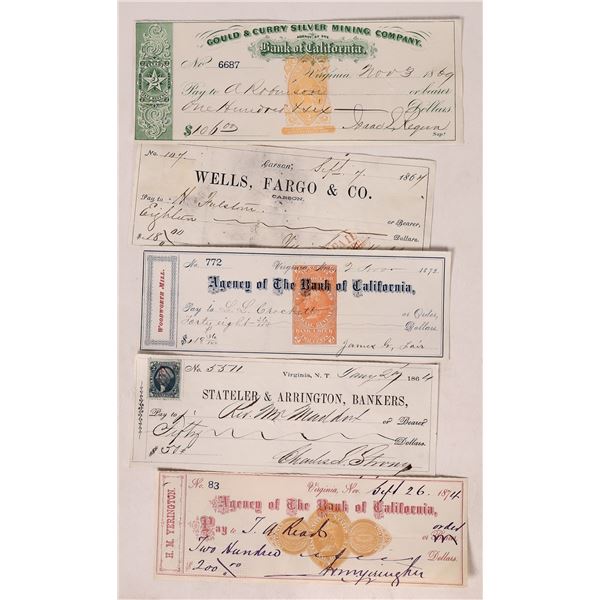 GOULD & CURRY SILVER MINING COMPANY.
AGENCY OF THE
Bank of California.
No. 6687 Virginia Nov 3 1869
Pay to A Robinson or bearer
One Hundred & six Dollars
$106.00 Isaac L Requa
Supt.
No. 107. Carson, Sept 7 1867
WELLS, FARGO & CO.
CARSON,
Pay to H. Fulstone or Bearer,
Eighteen Dollars.
$18.00
PAID
WOODWORTH MILL.
No. 772 Virginia, Nev. 2 Nov 1872
Agency of The Bank of California,
Pay to L. L. Crockett or Order,
Forty eight Dollars
James G. Fair
No. 5571 Virginia, N. T. Jany 29 1864
STATELER & ARRINGTON, BANKERS,
Pay to Rev. Mr Maddox or Bearer
Fifty Dollars.
$50
Charles L. Strong
H. M. YERINGTON.
No. 83 Virginia, Nev. Sept 26. 1874
Agency of The Bank of California,
Pay to T. A. Read or order
Two Hundred Dollars.
$200.00 HM Yerington